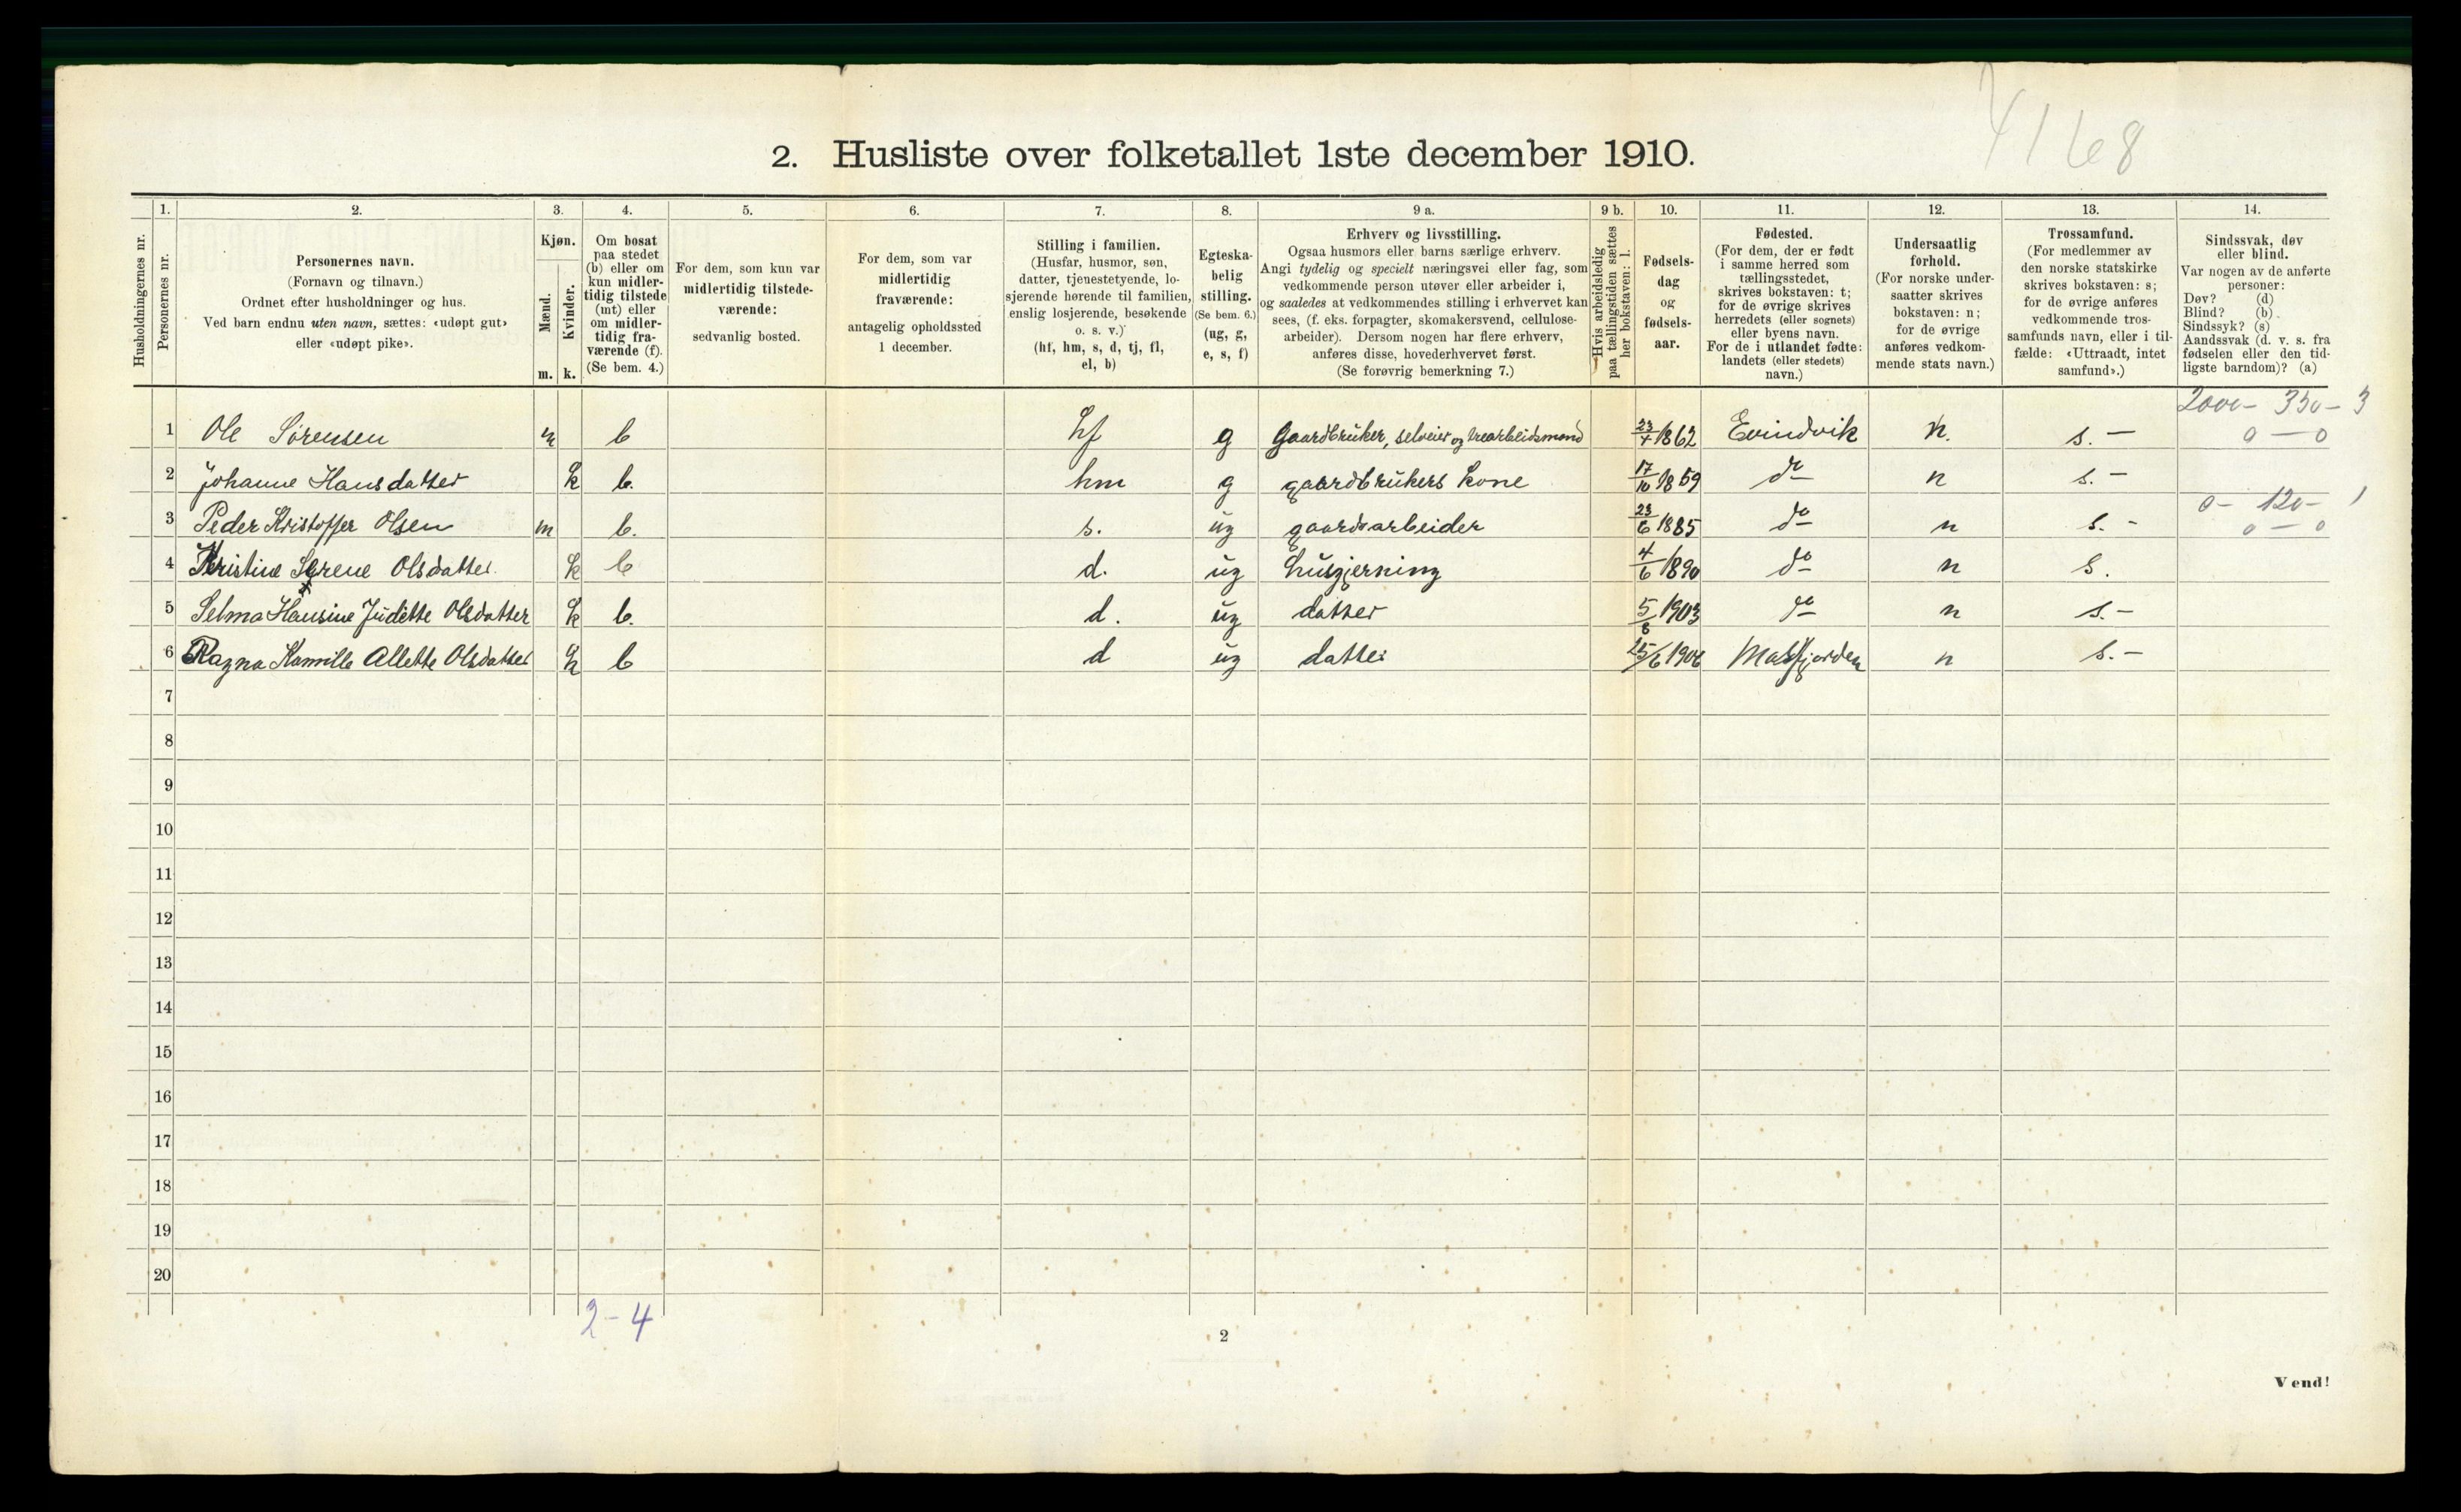 4168
2. Husliste over folketallet 1ste december 1910.
Husholdningernes nr.
1. Personernes nr.
2. Personernes navn.
(Fornavn og tilnavn.)
Ordnet efter husholdninger og hus.
Ved barn endnu uten navn, sættes: «udøpt gut»
eller «udøpt pike».
3. Kjøn.
Mænd. m.
Kvinder. k.
4. Om bosat
paa stedet
(b) eller om
kun midler-
tidig tilstede
(mt) eller
om midler-
tidig fra-
værende (f).
(Se bem. 4.)
5. For dem, som kun var
midlertidig tilstede-
værende:
sedvanlig bosted.
6. For dem, som var
midlertidig
fraværende:
antagelig opholdssted
1 december.
7. Stilling i familien.
(Husfar, husmor, søn,
datter, tjenestetyende, lo-
sjerende hørende til familien,
enslig losjerende, besøkende
o. s. v.)
(hf, hm, s, d, tj, fl,
el, b)
8. Egteska-
belig
stilling.
(Se bem. 6.)
(ug, g,
e, s, f)
9 a. Erhverv og livsstilling.
Ogsaa husmors eller barns særlige erhverv.
Angi tydelig og specielt næringsvei eller fag, som
vedkommende person utøver eller arbeider i,
og saaledes at vedkommendes stilling i erhvervet kan
sees, (f. eks. forpagter, skomakersvend, cellulose-
arbeider). Dersom nogen har flere erhverv,
anføres disse, hovederhvervet først.
(Se forøvrig bemerkning 7.)
9 b. Hvis arbeidsledig
paa tællingstiden sættes
her bokstaven: l.
10. Fødsels-
dag
og
fødsels-
aar.
11. Fødested.
(For dem, der er født
i samme herred som
tællingsstedet,
skrives bokstaven: t;
for de øvrige skrives
herredets (eller sognets)
eller byens navn.
For de i utlandet fødte:
landets (eller stedets)
navn.)
12. Undersaatlig
forhold.
(For norske under-
saatter skrives
bokstaven: n;
for de øvrige
anføres vedkom-
mende stats navn.)
13. Trossamfund.
(For medlemmer av
den norske statskirke
skrives bokstaven: s;
for de øvrige anføres
vedkommende tros-
samfunds navn, eller i til-
fælde: «Uttraadt, intet
samfund».)
14. Sindssvak, døv
eller blind.
Var nogen av de anførte
personer:
Døv? (d)
Blind? (b)
Sindssyk? (s)
Aandssvak (d. v. s. fra
fødselen eller den tid-
ligste barndom)? (a)
2000- 350- 3
1 Ole Sørensen m b hf g Gaardbruker, selveier og trearbeidsmand 23/4 1862 Evindvik n. s. - 0 - 0
2 Johanne Hansdatter k b. hm g gaardbrukers kone 17/10 1859 do n s. -
0- 120- 1
3 Peder Kristoffer Olsen m b. s. ug gaardsarbeider 23/6 1885 do n s. - 0 - 0
4 Kristine Serene Olsdatter. k b d. ug husgjerning 4/6 1890 do n s.
5 Selma Hansine Judette Olsdatter k b. d. ug datter 5/8 1903 do n s. -
6 Ragna Kamille Allette Olsdatter k b d ug datter 25/6 1906 Masfjorden n s. -
7
8
9
10
11
12
13
14
15
16
17
18
19
20
2-4
2
Vend!